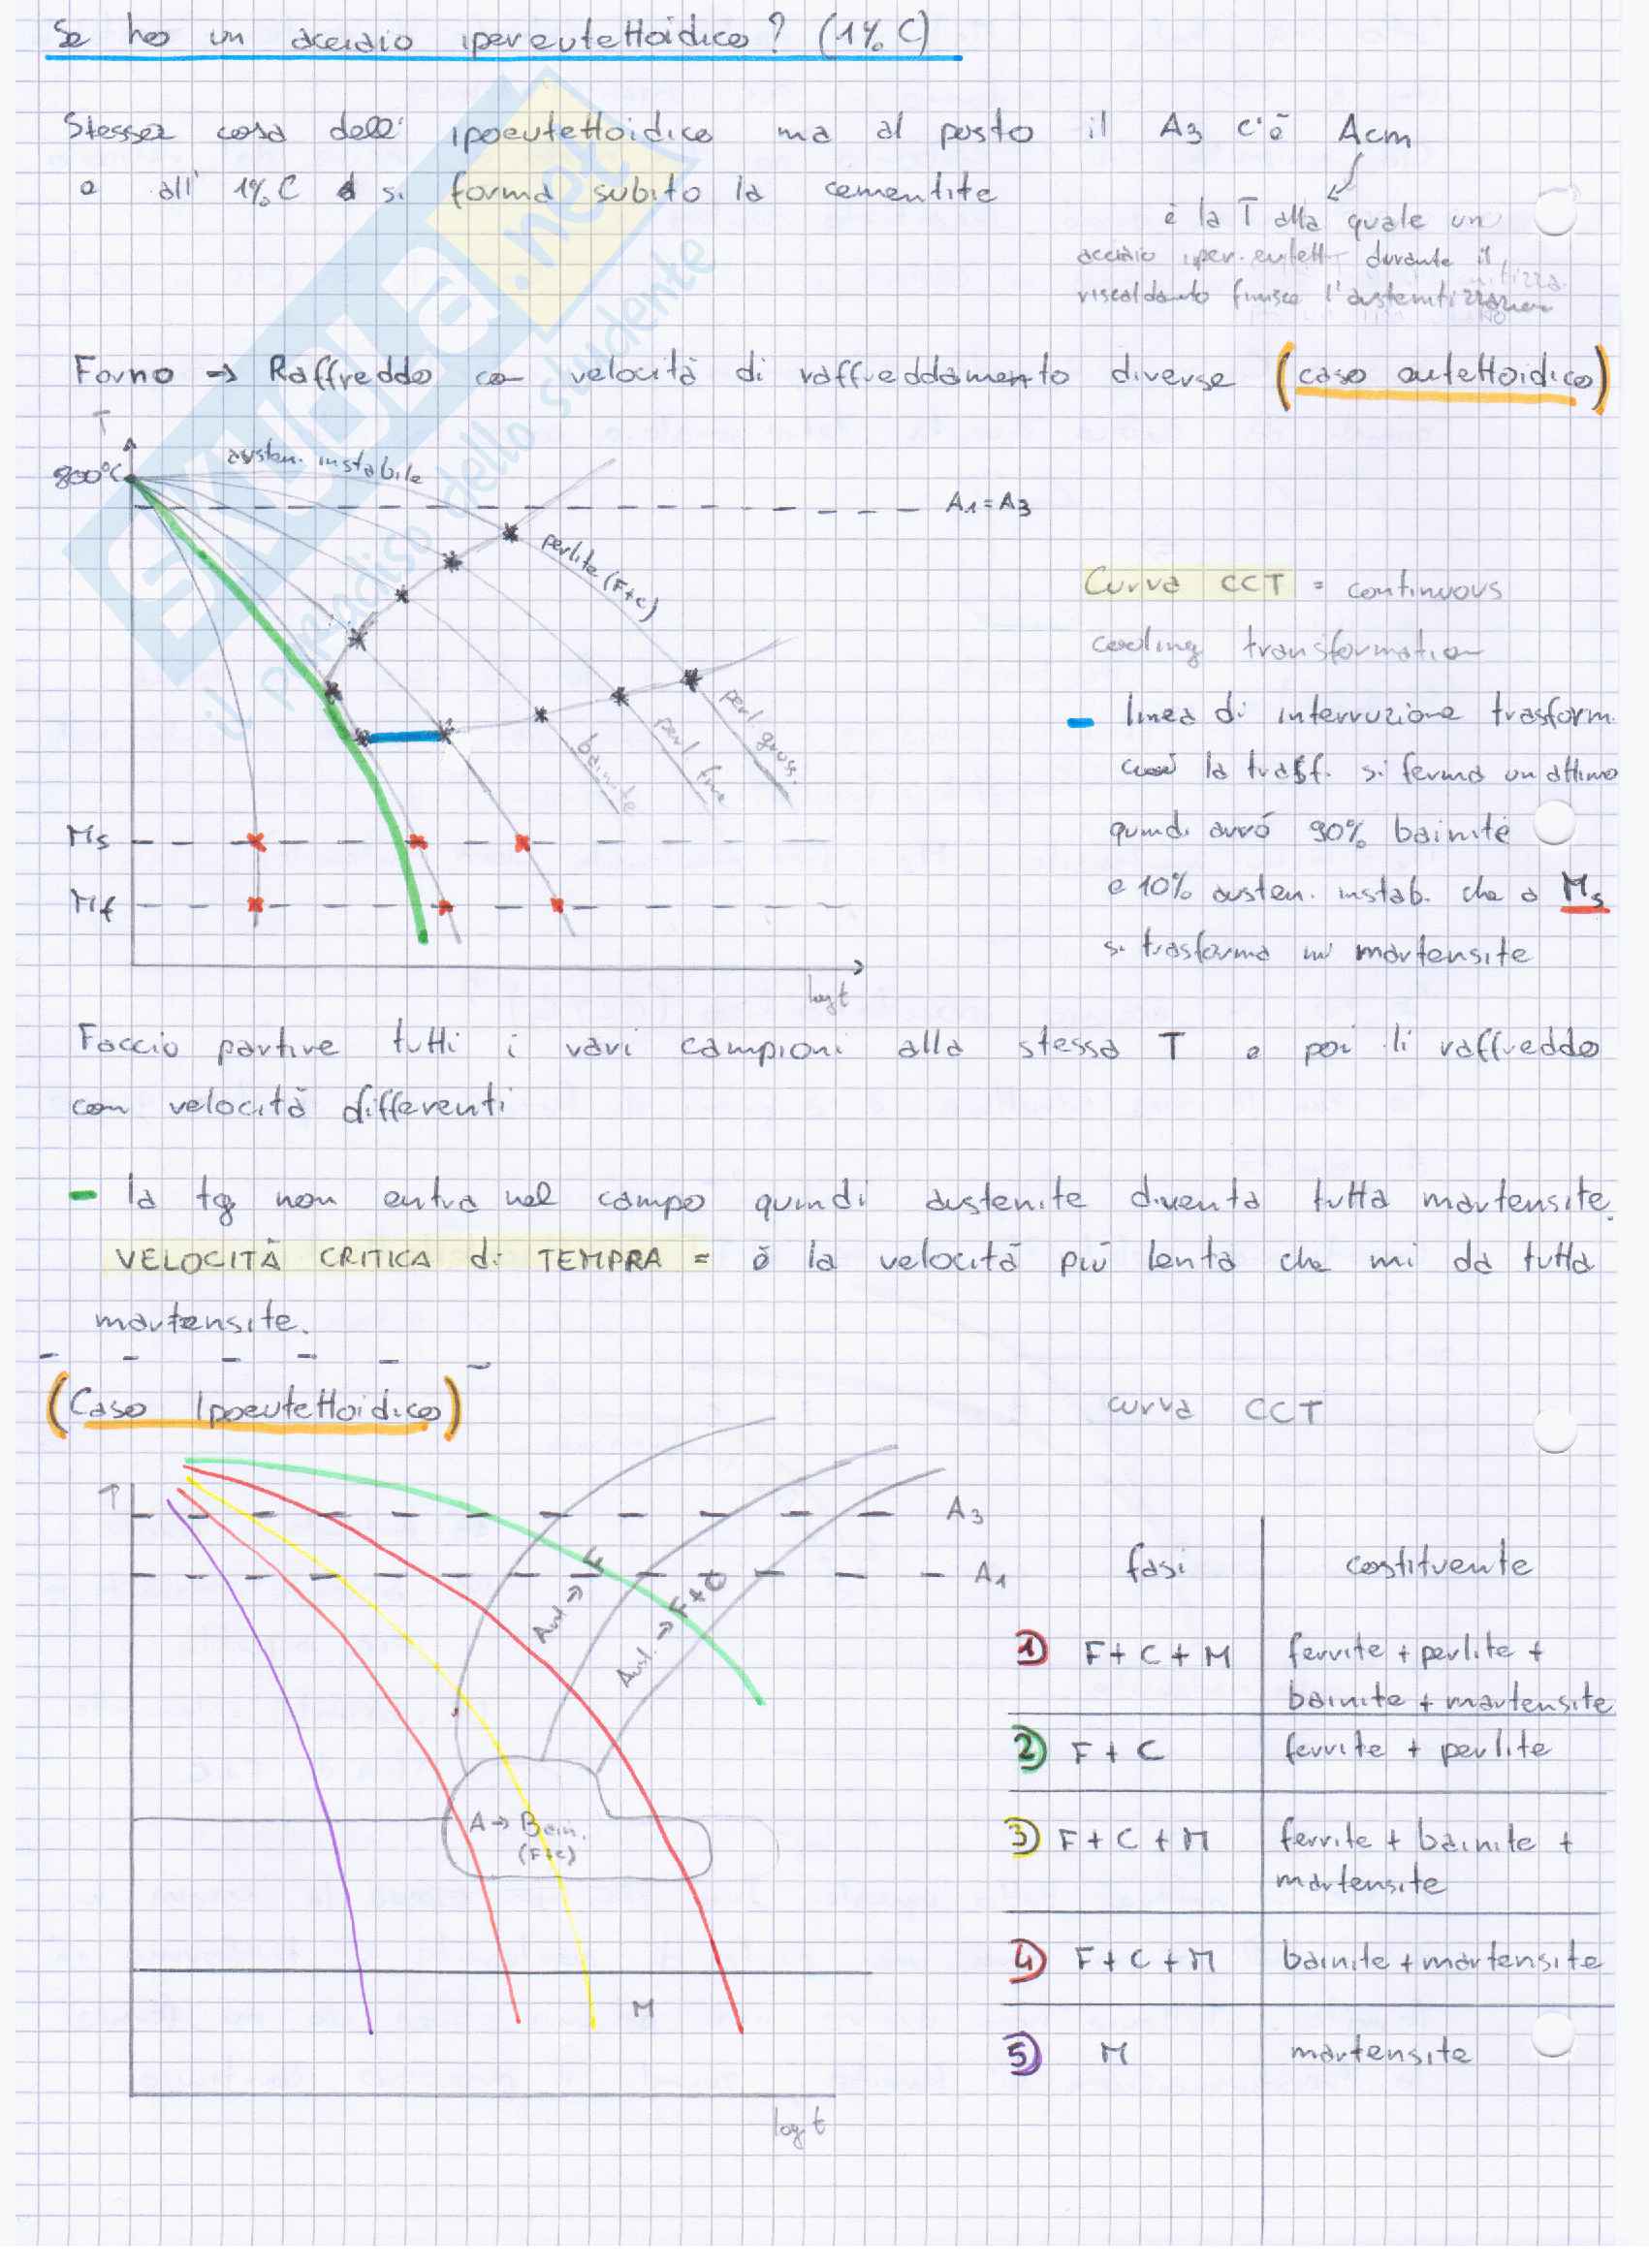 Se ho un acciaio ipereutettoidico? (1% C)
Stessa cosa dell' ipoeutettoidico ma al posto il A3 c'è Acm
e all' 1% C si forma subito la cementite
è la T alla quale un
acciaio iper.eutett durante il
riscaldamento finisce l'austenitizzazione
Forno → Raffreddo con velocità di raffreddamento diverse (caso eutettoidico)
T
800°C
austen. instabile
A1=A3
perlite (F+C)
Curva CCT = continuous
cooling transformation
perl. gross.
perl. fine
bainite
- linea di interruzione trasform.
la trasf. si ferma un attimo
quindi avrò 90% bainite
e 10% austen. instab. che a Ms
si trasforma in martensite
Ms
Mf
log t
Faccio partire tutti i vari campioni alla stessa T e poi li raffreddo
con velocità differenti
- la tg non entra nel campo quindi austenite diventa tutta martensite.
VELOCITÀ CRITICA di TEMPRA = è la velocità più lenta che mi da tutta
martensite.
(Caso Ipoeutettoidico)
curva CCT
A3
A1
Aust → F
Aust. → F+C
A → Bain.
(F+C)
M
log t
fasi costituente
1) F+C+M ferrite + perlite +
bainite + martensite
2) F+C ferrite + perlite
3) F+C+M ferrite + bainite +
martensite
4) F+C+M bainite + martensite
5) M martensite
SKUOLA.net
il paradiso dello studente